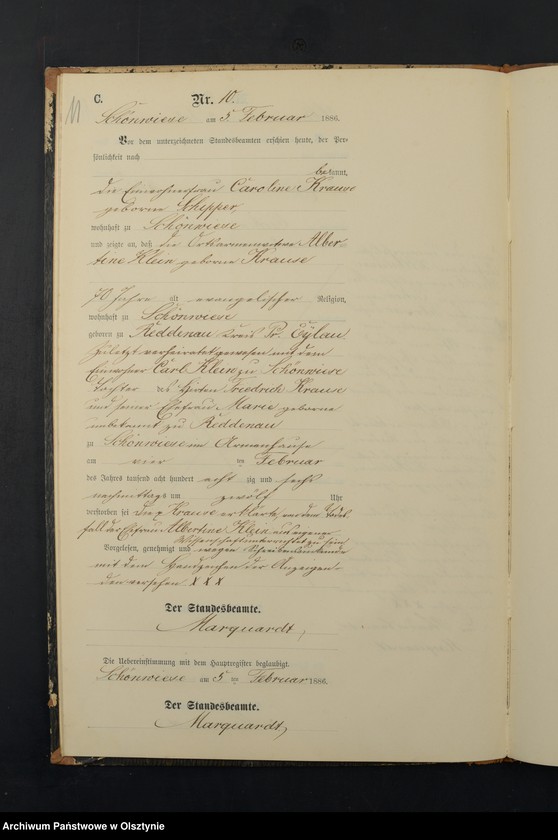 11
C.
Nr. 10.
Schönwiese am 5. Februar 1886.
Vor dem unterzeichneten Standesbeamten erschien heute, der Per-
sönlichkeit nach
bekannt,
die Einwohnerfrau Caroline Krause
geborne Schipper,
wohnhaft zu Schönwiese
und zeigte an, daß die Ortsarmenwitwe Alber-
tine Klein geborne Krause
70 Jahre alt evangelischer Religion,
wohnhaft zu Schönwiese
geboren zu Reddenau Kreis Pr. Eylau
zuletzt verheiratet gewesen mit dem
Einwohner Carl Klein zu Schönwiese
Tochter des Hirten Friedrich Krause
und seiner Ehefrau Marie geborne
unbekannt zu Reddenau
zu Schönwiese im Armenhause
am vier ten Februar
des Jahres tausend acht hundert acht zig und sechs
nachmittags um zwölf Uhr
verstorben sei Die p Krause erklärte, von dem Todes-
fall der Ehefrau Albertine Klein aus eigener
Wissenschaft unterrichtet zu sein
Vorgelesen, genehmigt und wegen Schreibensunkunde
mit dem Handzeichen der Anzeigen-
den versehen X X X
Der Standesbeamte.
Marquardt,
Die Uebereinstimmung mit dem Hauptregister beglaubigt.
Schönwiese am 5 ten Februar 1886.
Der Standesbeamte.
Marquardt,
Archiwum Państwowe w Olsztynie